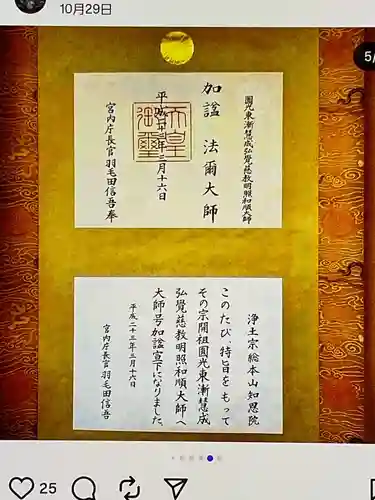 10月29日
5/
圓光東漸慧成弘覺慈教明照和順大師
加諡 法爾大師
平成廿三年三月十六日
天皇御璽
宮内庁長官羽毛田信吾奉
浄土宗総本山知恩院
このたび 特旨をもって
その宗開祖圓光東漸慧成
弘覺慈教明照和順大師へ
大師号加諡宣下になりました
平成二十三年三月十六日
宮内庁長官 羽毛田信吾
25